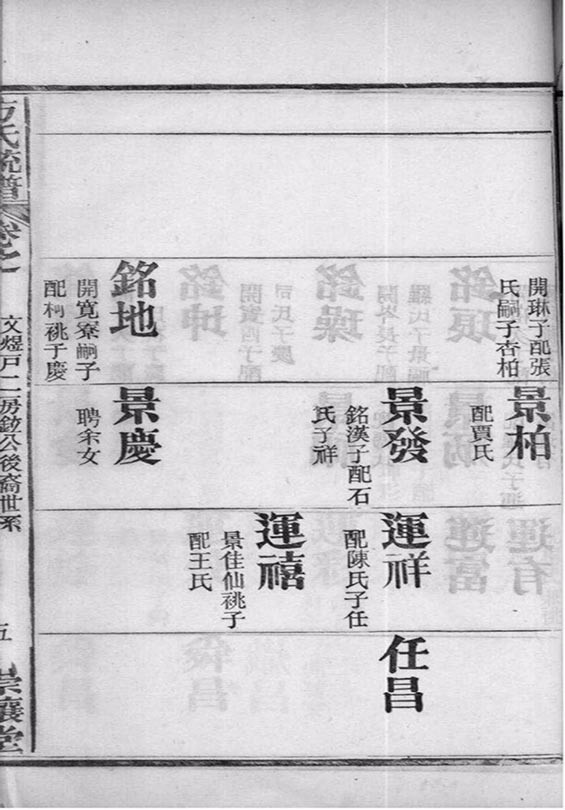 開琳子配張
氏嗣子杏柏
景柏
配賈氏
景發
銘漢子配石
氏子祥
運祥
配陳氏子任
任昌
運禧
景佳仙祧子
配王氏
銘地
開寬寮嗣子
配柯祧子慶
景慶
聘余女
方氏統譜
卷之一
文煜戶二房欽公後裔世系
五
崇讓堂